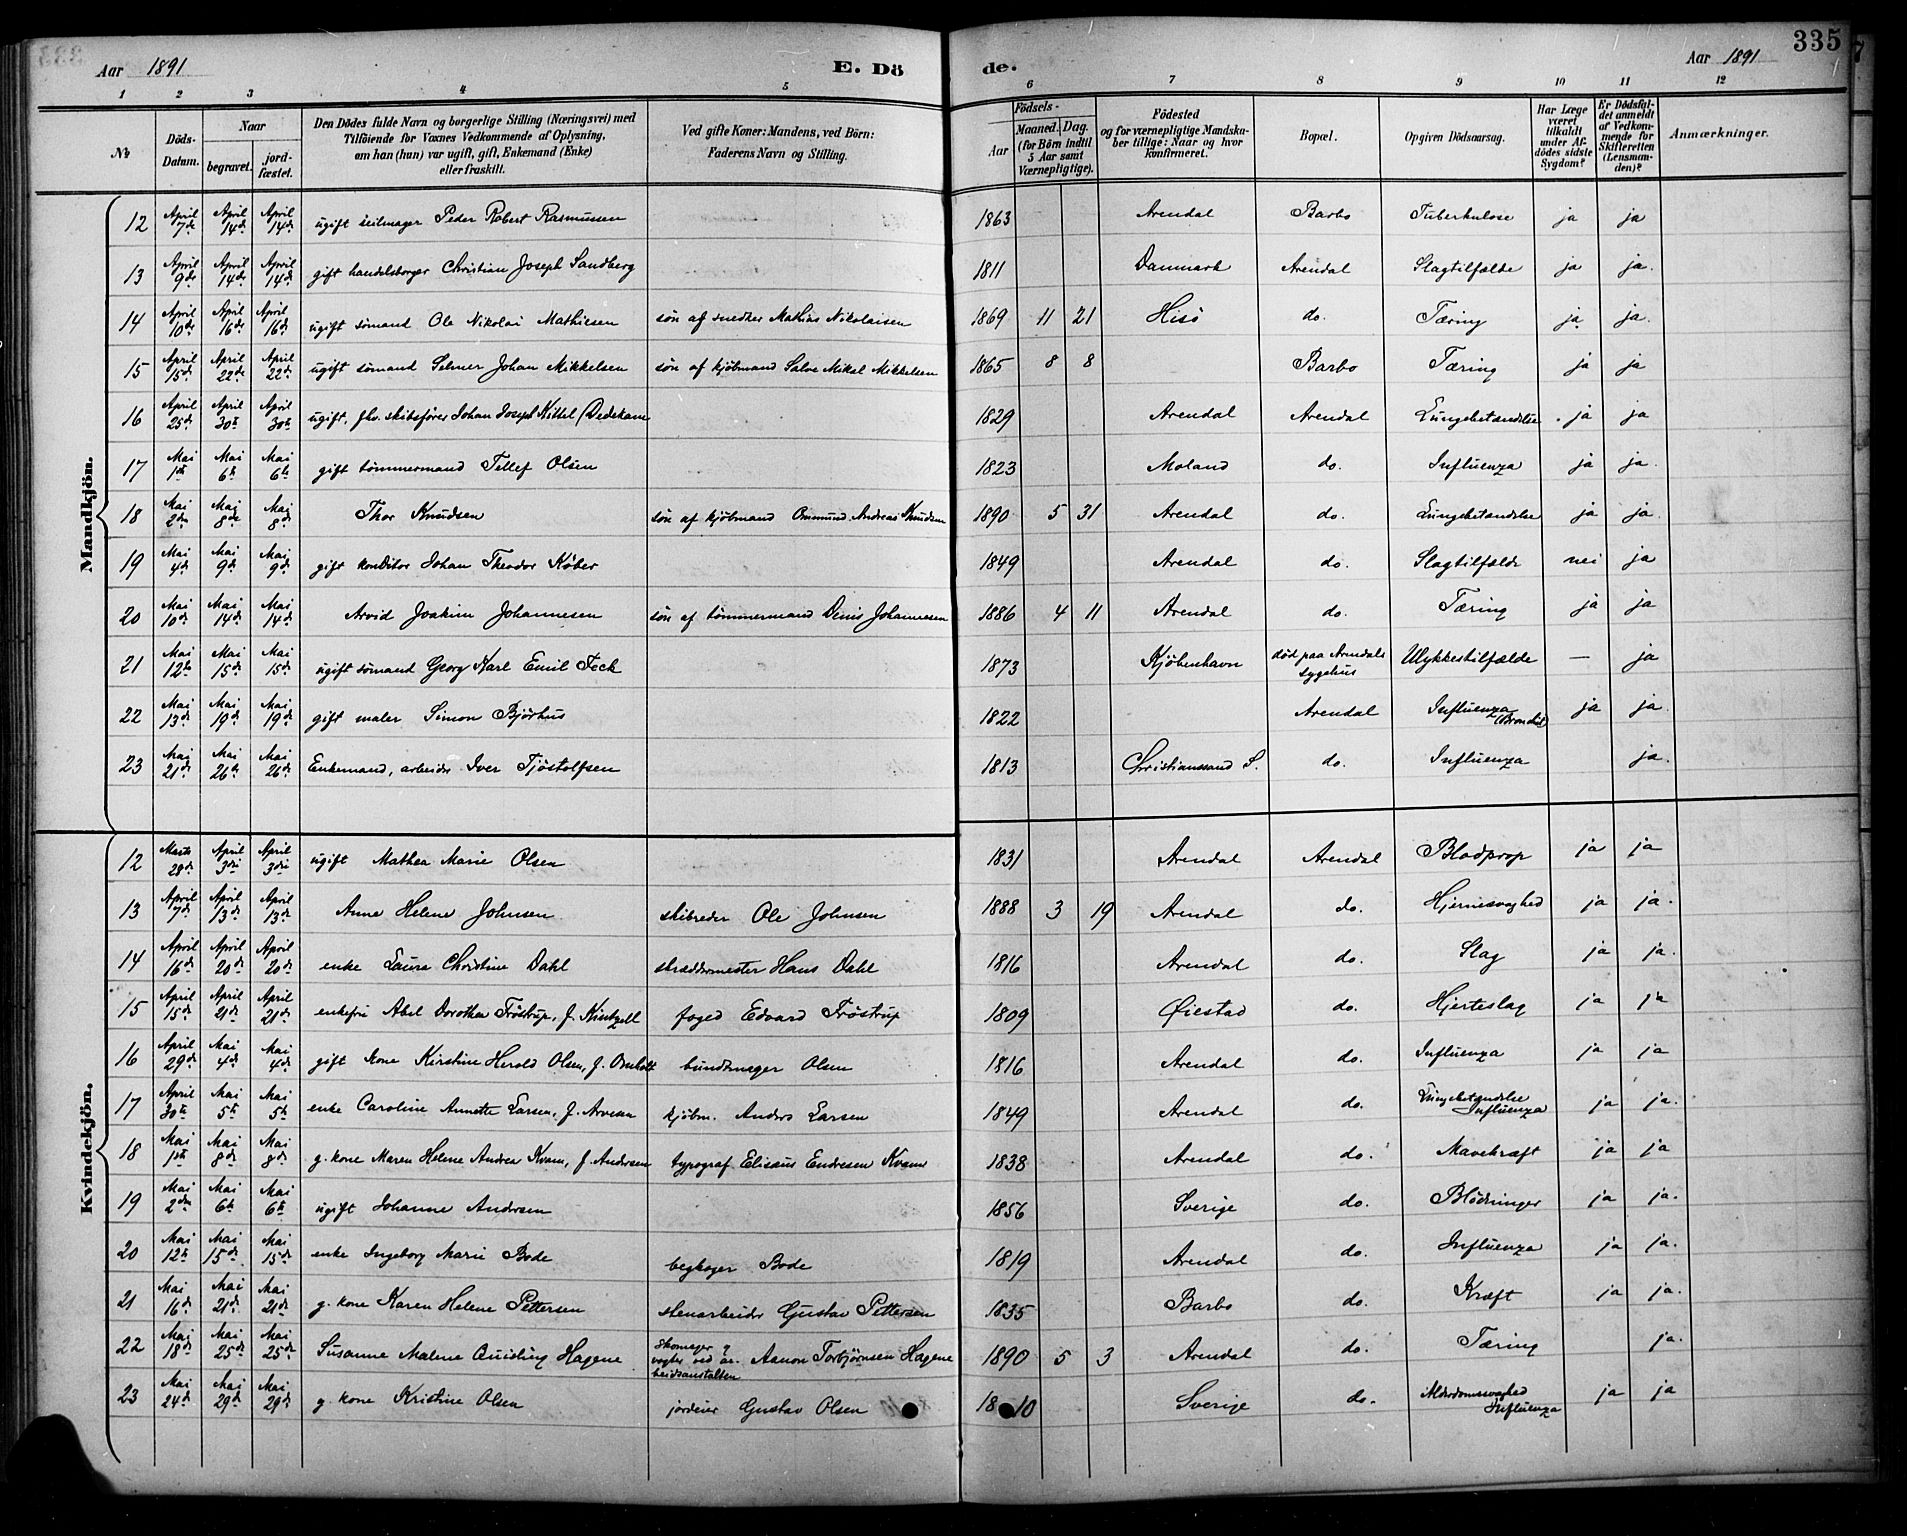 335
Aar 1891 E. Dö de. Aar 1891
1 2 3 4 5 6 7 8 9 10 11 12
№ Döds-Datum. Naar begravet. jord-fæstet. Den Dødes fulde Navn og borgerlige Stilling (Næringsvei) med Tilföiende for Voxnes Vedkommende af Oplysning, om han (hun) var ugift, gift, Enkemand (Enke) eller fraskilt. Ved gifte Koner: Mandens, ved Börn: Faderens Navn og Stilling. Födsels- Aar Maaned. Dag. (for Börn indtil 5 Aar samt Værnepligtige). Födested og for værnepligtige Mandskaber tillige: Naar og hvor konfirmeret. Bopæl. Opgiven Dödsaarsag. Har Læge været tilkaldt under Afdödes sidste Sygdom? Er Dödsfaldet anmeldt af Vedkommende for Skifteretten (Lensmanden)? Anmærkninger.
Mandkjön.
12 April 7de April 14de April 14de ugift seilmager Peder Robert Rasmussen 1863 Arendal Barbo Tuberkulose ja ja
13 April 9de April 14de April 14de gift handelsborger Christian Joseph Sandberg 1811 Danmark Arendal Slagtilfælde ja ja.
14 April 10de April 16de April 16de ugift sömand Ole Nikolai Mathiesen sön af snedker Mathias Nikolaisen 1869 11 21 Hisö do. Tæring ja ja.
15 April 15de April 22de April 22de ugift sömand Selmer Johan Mikkelsen sön af kjöbmand Salve Mikal Mikkelsen 1865 8 8 Barbo Tæring ja ja
16 April 25de April 30te April 30te ugift, fhv. skibsförer Johan Joseph Kittel Dedekam 1829 Arendal Arendal Lungebetændelse ja ja
17 Mai 1ste Mai 6te Mai 6te gift tömmermand Tellef Olsen 1823 Moland do. Influenza ja ja.
18 Mai 2den Mai 8de Mai 8de Thor Knudsen sön af kjöbmand Ommund Andreas Knudsen 1890 5 31 Arendal do. Lungebetændelse ja ja.
19 Mai 4de Mai 9de Mai 9de gift konditor Johan Theodor Köber 1849 Arendal do. Slagtilfælde nei ja
20 Mai 10de Mai 14de Mai 14de Arvid Joakim Johannesen sön af tömmermand Denis Johannesen 1886 4 11 Arendal do. Tæring ja ja
21 Mai 12te Mai 15de Mai 15de ugift sömand Georg Karl Emil Fock 1873 Kjöbenhavn död paa Arendals sygehus Ulykkestilfælde — ja
22 Mai 13de Mai 19de Mai 19de gift maler Simon Björhus 1822 Arendal Influenza ja ja.
23 Mai 21de Mai 26te Mai 26de Enkemand, arbeider Iver Tjöstolfsen 1813 Christianssand S. do. Influenza ja.
Kvindekjön.
12 Marts 28de April 3die April 3die ugift Mathea Marie Olsen 1831 Arendal Arendal Blodprop ja ja
13 April 7de April 13de April 13de Anna Helene Johnsen skibreder Ole Johnsen 1888 3 19 Arendal do. Hjernesvaghed ja ja.
14 April 16de April 20de April 20de enke Laura Christine Dahl skræddermester Hans Dahl 1816 Arendal do. Slag ja ja.
15 April 15de April 21de April 21de enkefru Abel Dorothea Tröstrup, f. Kintzell foged Edvard Tröstrup 1809 Øiestad do. Hjerteslag ja ja
16 April 29de Mai 4de Mai 4de gift kone Kirstine Herold Olsen, f. Omholt bundtmager Olsen 1816 Arendal do. Influenza ja ja
17 April 30te Mai 5te Mai 5te enke Caroline Annette Larsen, f. Arvesen kjöbm. Anders Larsen 1849 Arendal do. Lungebetændelse Influenza ja ja.
18 Mai 1ste Mai 8de Mai 8de g. kone Maren Helene Andrea Kvam, f. Andersen typograf Elisæus Endresen Kvam 1838 Arendal do. Mavekræft ja ja
19 Mai 2den Mai 6te Mai 6te ugift Johanne Andersen 1856 Sverige do. Blödninger ja ja.
20 Mai 12te Mai 15de Mai 15de enke Ingeborg Marie Bode begkoger Bode 1819 Arendal do. Influenza ja ja.
21 Mai 16de Mai 21de Mai 21de g. kone Karen Helene Pettersen stenarbeider Gustav Pettersen 1835 Barbo do. Kræft ja ja.
22 Mai 18de Mai 25de Mai 25de Susanne Malene Quisling Hagene Skomager & vogter ved arbeidsanstalten Aanon Torbjörnsen Hagene 1890 5 3 Arendal do. Tæring ja.
23 Mai 24de Mai 29de Mai 29de g. kone Kristine Olsen jordeier Gustav Olsen 1810 Sverige do. Alderdomssvaghed Influenza ja ja